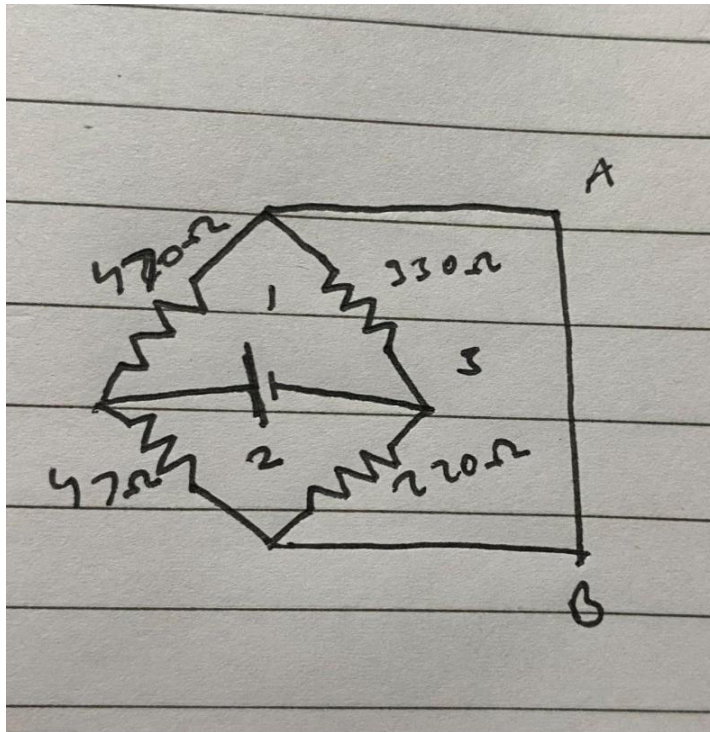 A
470Ω
330Ω
1
3
2
47Ω
220Ω
B